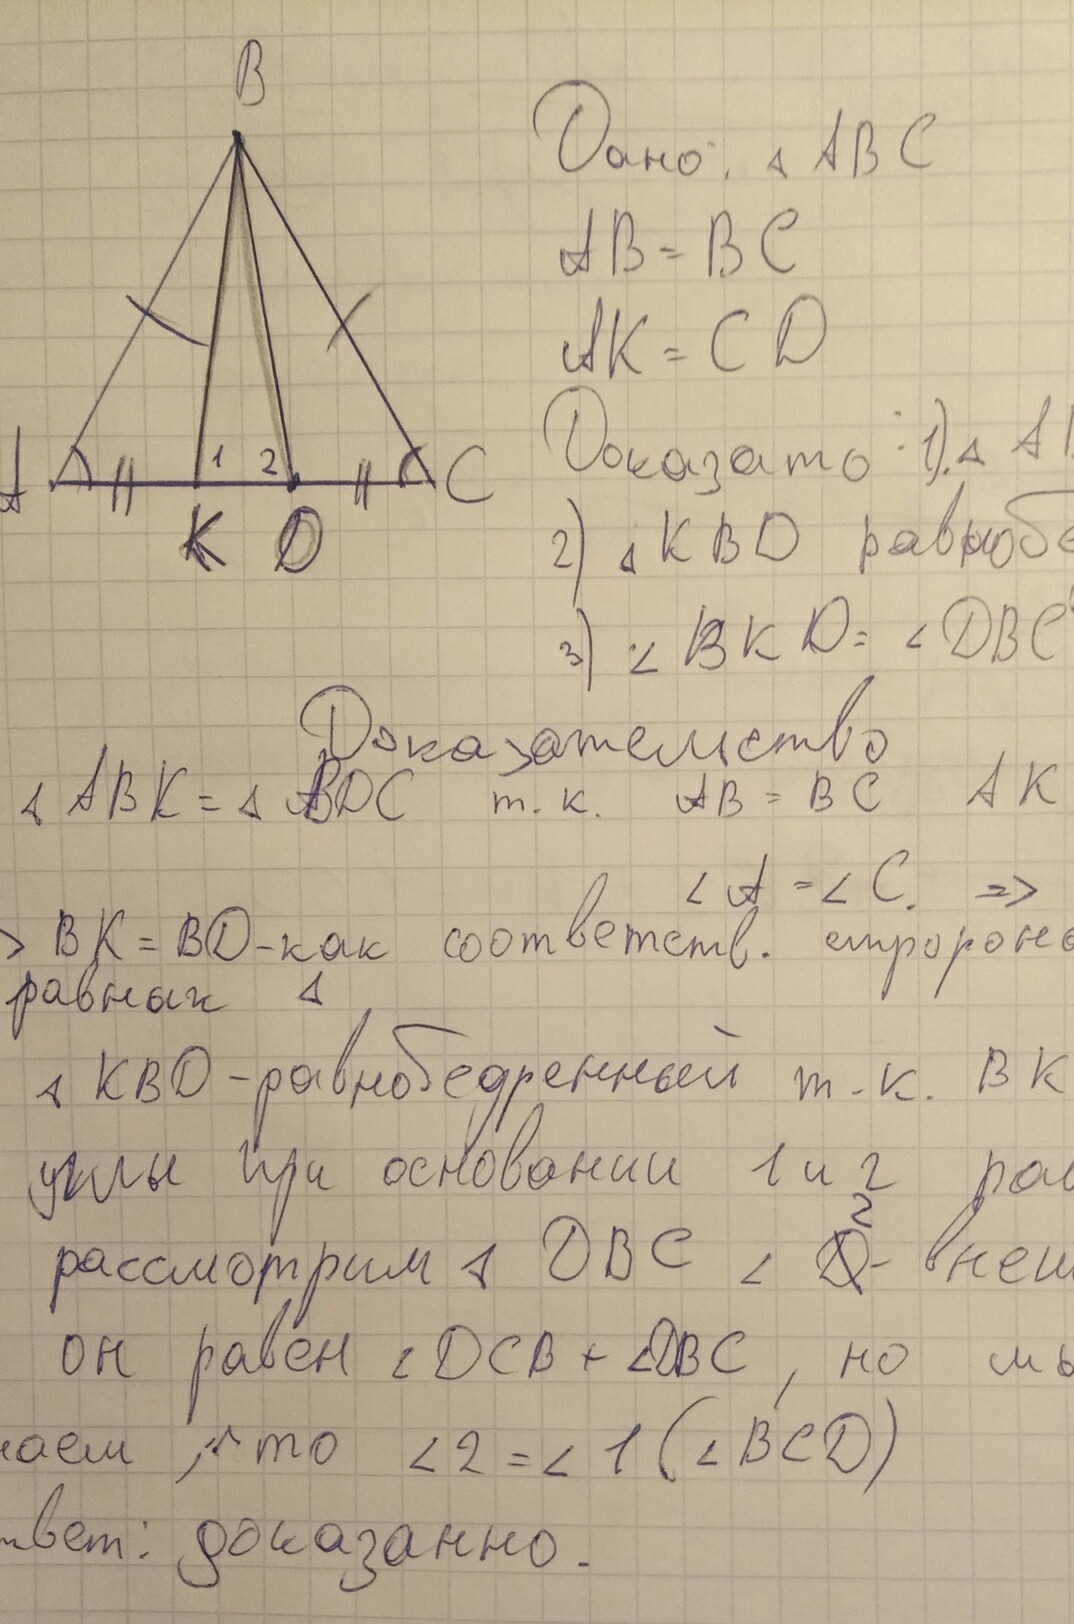 B
Дано: △ ABC
AB = BC
AK = CD
A
1
2
C
K
D
Доказать: 1). △
2) △ KBD равнобе
3) ∠ BKD = ∠ DBC
Доказательство
△ ABK = △ BDC т.к. AB = BC AK
∠ A = ∠ C. =>
> BK = BD - как соответств.
равных △
△ KBD - равнобедренный т.к. BK
углы при основании 1 и 2 рав
рассмотрим △ DBC ∠ 2 - внеш
он равен ∠ DCB + ∠DBC, но мы
наем, что ∠2 = ∠1 (∠ BCD)
твет: доказанно.